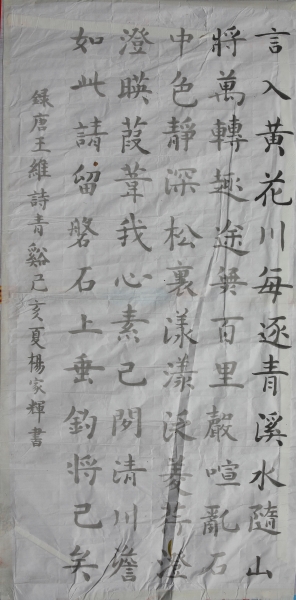 言入黃花川每逐青溪水隨山
將萬轉趣途無百里聲喧亂石
中色靜深松裏漾漾泛菱荇澄
澄暎葭葦我心素已閑清川澹
如此請留磐石上垂釣將已矣
錄唐王維詩青谿己亥夏楊家輝書